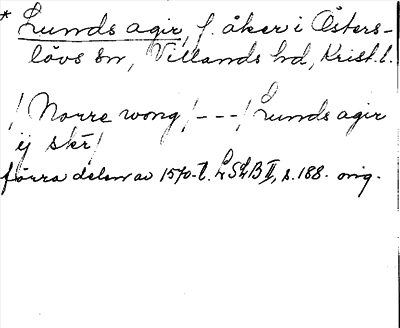 * Lunds agir, f. åker i Östers-
lövs sn, Villands hd, Krist. l.
/ Norre wong / - - - / Lunds agir
ij skr /
förra delen av 1570-t. LSLB II, s. 188. orig.